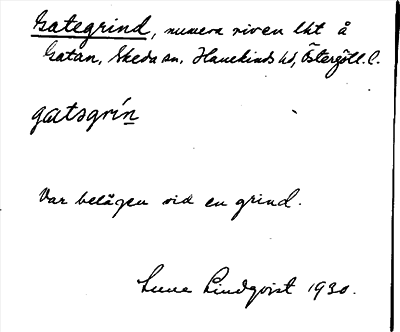 Gategrind, numera riven lht å
Gatan, Skeda sn, Hanekinds hd, Östergötl. l.
gatsgrín
Var belägen vid en grind.
Sune Lindqvist 1930.